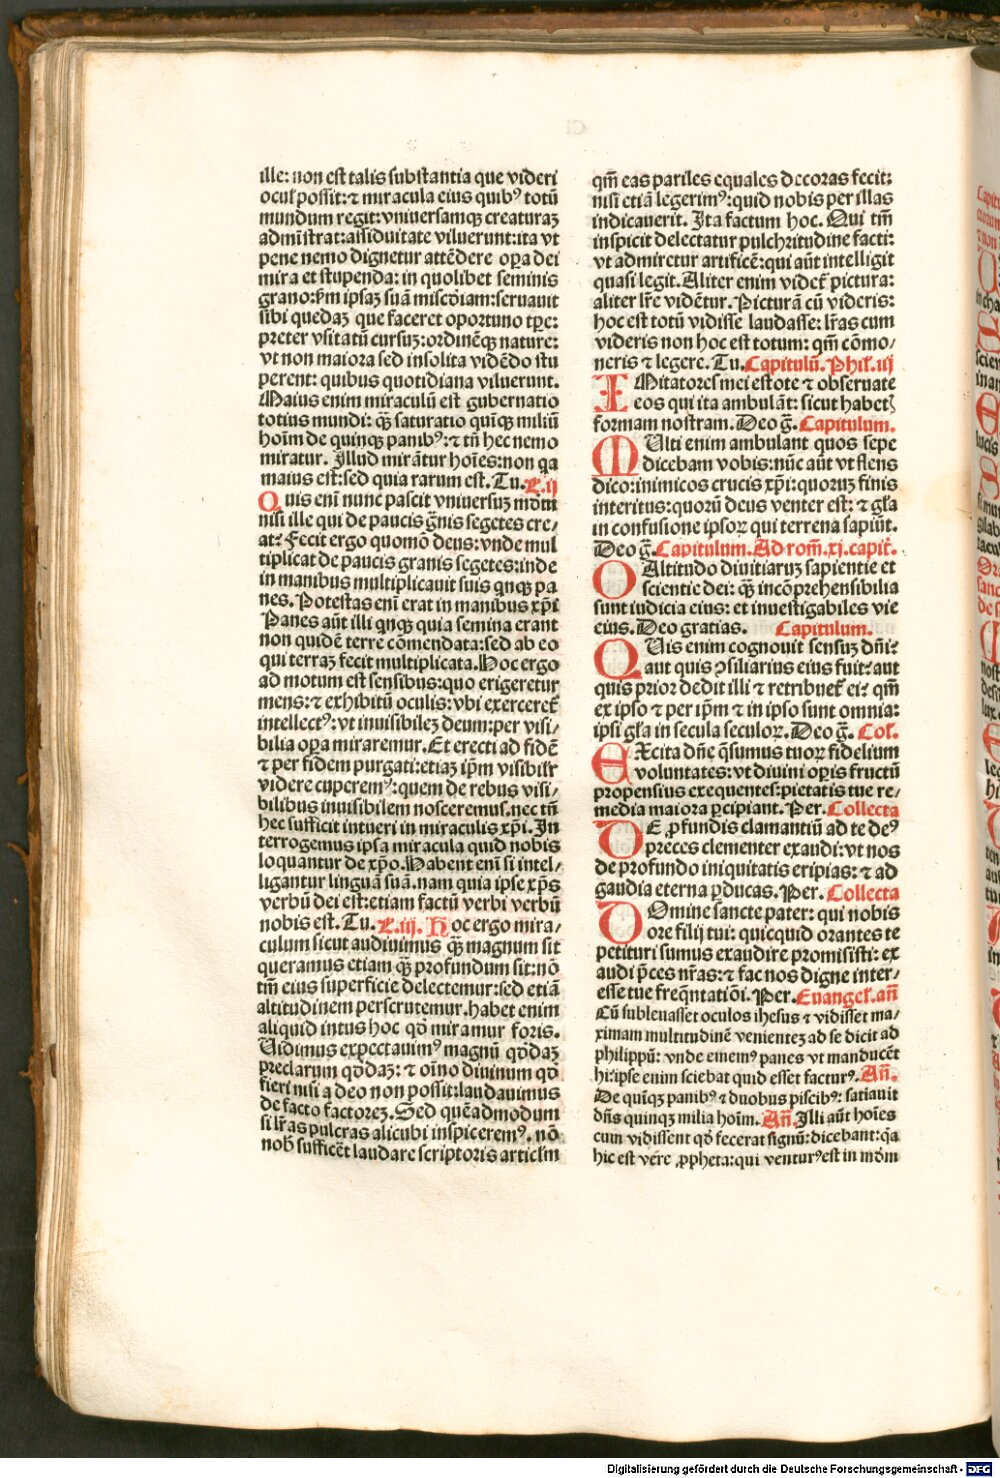 ille: non est talis substantia que videri
ocul̕ possit: ⁊ miracula eius quibꝰ totũ
mundum regit: vniuersamqꝫ creaturaꝫ
admĩstrat: assiduitate viluerunt: ita vt
pene nemo dignetur attẽdere oꝑa dei
mira et stupenda: in quolibet seminis
grano: ẜm ipsaꝫ suã miscõiam: seruauit
sibi quedaꝫ que faceret oportuno tꝑe:
preter vsitatũ cursuꝫ: ordinẽqꝫ nature:
vt non maiora sed insolita vidẽdo stu
perent: quibus quotidiana viluerunt.
Maius enim miraculũ est gubernatio
totius mundi: qꝫ̃ saturatio quĩqꝫ miliũ
hoĩm de quinqꝫ panibꝰ: ⁊ tñ hec nemo
miratur. Illud mirãtur hoĩes: non qꝛ
maius est: sed quia rarum est. Tu. L. ij
Quis enĩ nunc pascit vniuersuꝫ mõm
nisi ille qui de paucis g̃nis segetes cre/
at? Fecit ergo quomõ deus: vnde mul
tiplicat de paucis granis segetes: inde
in manibus multiplicauit suis qnqꝫ pa
nes. Potestas enĩ erat in manibus xp̃i
Panes aũt illi qnqꝫ quia semina erant
non quidẽ terre cõmendata: sed ab eo
qui terraꝫ fecit multiplicata. Hoc ergo
ad motum est sensibus: quo erigeretur
mens: ⁊ exhibitũ oculis: vbi exerceret̃
intellectꝰ: vt inuisibileꝫ deum: per visi/
bilia oꝑa miraremur. Et erecti ad fidẽ
⁊ per fidem purgati: etiaꝫ ip̃m visibilr̃
videre cuperemꝰ: quem de rebus visi/
bilibus inuisibilem nosceremus. nec tñ
hec sufficit intueri in miraculis xp̃i. In
terrogemus ipsa miracula quid nobis
loquantur de xp̃o. Habent enĩ si intel/
ligantur linguã suã. nam quia ipse xp̃s
verbũ dei est: etiam factũ verbi verbũ
nobis est. Tu. L. iij. Hoc ergo mira/
culum sicut audiuimus qꝫ̃ magnum sit
queramus etiam qꝫ̃ profundum sit: nõ
tm̃ eius superficie delectemur: sed etiã
altitudinem perscrutemur. habet enim
aliquid intus hoc qd̃ miramur foris.
Uidimus expectauimꝰ magnũ qd̃daꝫ
preclarum qd̃daꝫ: ⁊ oĩno diuinum qd̃
fieri nisi a deo non possit: laudauimus
de facto factoreꝫ. Sed quẽadmodum
si lr̃as pulcras alicubi inspiceremꝰ. nõ
nob̃ sufficẽt laudare scriptoris articĺm
qm̃ eas pariles equales decoras fecit:
nisi etiã legerimꝰ: quid nobis per illas
indicauerit. Ita factum hoc. Qui tm̃
inspicit delectatur pulchritudine facti:
vt admiretur artificẽ: qui aũt intelligit
quasi legit. Aliter enim videt̃ pictura:
aliter lr̃e vidẽtur. Picturã cũ videris:
hoc est totũ vidisse laudasse: lr̃as cum
videris non hoc est totum: qm̃ cõmo/
neris ⁊ legere. Tu. Capitulũ. Phil̕. iij
IMitatores mei estote ⁊ obseruate
eos qui ita ambulãt: sicut habetꝭ
formam nostram. Deo g̃. Capitulum.
MUlti enim ambulant quos sepe
dicebam vobis: nũc aũt vt flens
dico: inimicos crucis xp̃i: quoruꝫ finis
interitus: quorũ deus venter est: ⁊ gl̃a
in confusione ipsoꝝ qui terrena sapiũt.
Deo g̃. Capitulum. Ad rom̃. xj. capit̃.
OAltitudo diuitiaruꝫ sapientie et
scientie dei: qꝫ̃ incõprehensibilia
sunt iudicia eius: et inuestigabiles vie
eius. Deo gratias. Capitulum.
QUis enim cognouit sensuꝫ dñi?
aut quis ꝯsiliarius eius fuit? aut
quis prior dedit illi ⁊ retribuet̃ ei? qm̃
ex ipso ⁊ per ip̃m ⁊ in ipso sunt omnia:
ipsi gl̃a in secula seculoꝝ. Deo g̃. Col̕.
EXcita dñe q̃sumus tuoꝝ fidelium
voluntates: vt diuini oꝑis fructũ
propensius exequentes: pietatis tue re/
media maiora ꝑcipiant. Per. Collecta
DE ꝓfundis clamantiũ ad te deꝰ
preces clementer exaudi: vt nos
de profundo iniquitatis eripias: ⁊ ad
gaudia eterna ꝑducas. Per. Collecta
DOmine sancte pater: qui nobis
ore filij tui: quicquid orantes te
petituri sumus exaudire promisisti: ex
audi p̃ces nr̃as: ⁊ fac nos digne inter/
esse tue freq̃ntatiõi. Per. Euangel̕. añ
Cũ subleuasset oculos ihesus ⁊ vidisset ma/
ximam multitudinẽ venienteꝫ ad se dicit ad
philippũ: vnde ememꝰ panes vt manducẽt
hi: ipse enim sciebat quid esset facturꝰ. Añ.
De quĩqꝫ panibꝰ ⁊ duobus piscibꝰ: satiauit
dñs quinqꝫ milia hoĩm. Añ. Illi aũt hoĩes
cum vidissent qd̃ fecerat signũ: dicebant: qꝛ
hic est vere ꝓpheta: qui venturꝰ est in mõm
Digitalisierung gefördert durch die Deutsche Forschungsgemeinschaft - DFG